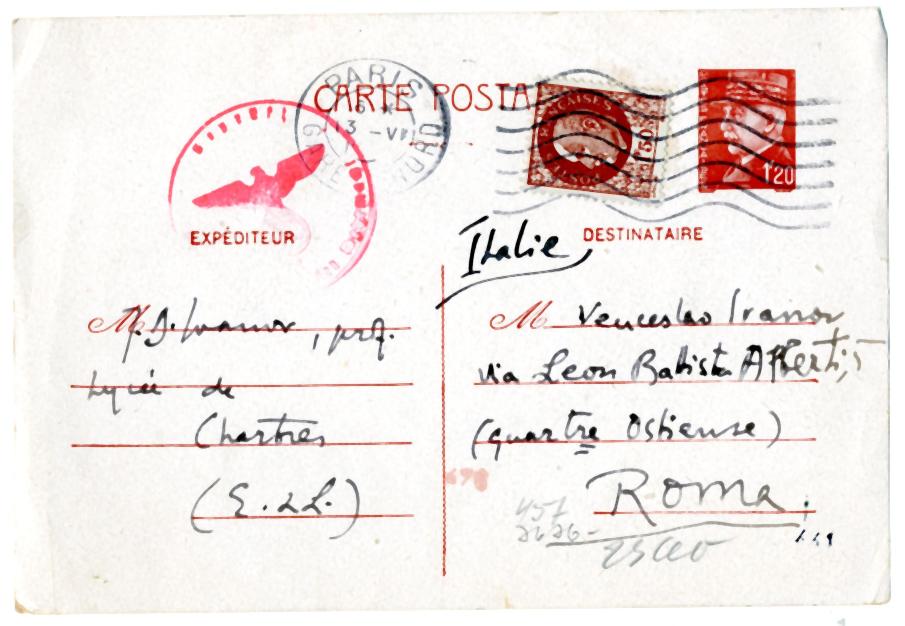 CARTE POSTA
PARIS
GARE NORD
13 -VI
1F50
1F20
EXPÉDITEUR
DESTINATAIRE
Italie
M. Ivanov, prof.
Lycée de
Chartres
(E. & L.)
M Venceslao Ivanov
via Leon Battista Alberti, 5
(quartre Ostiense)
Roma